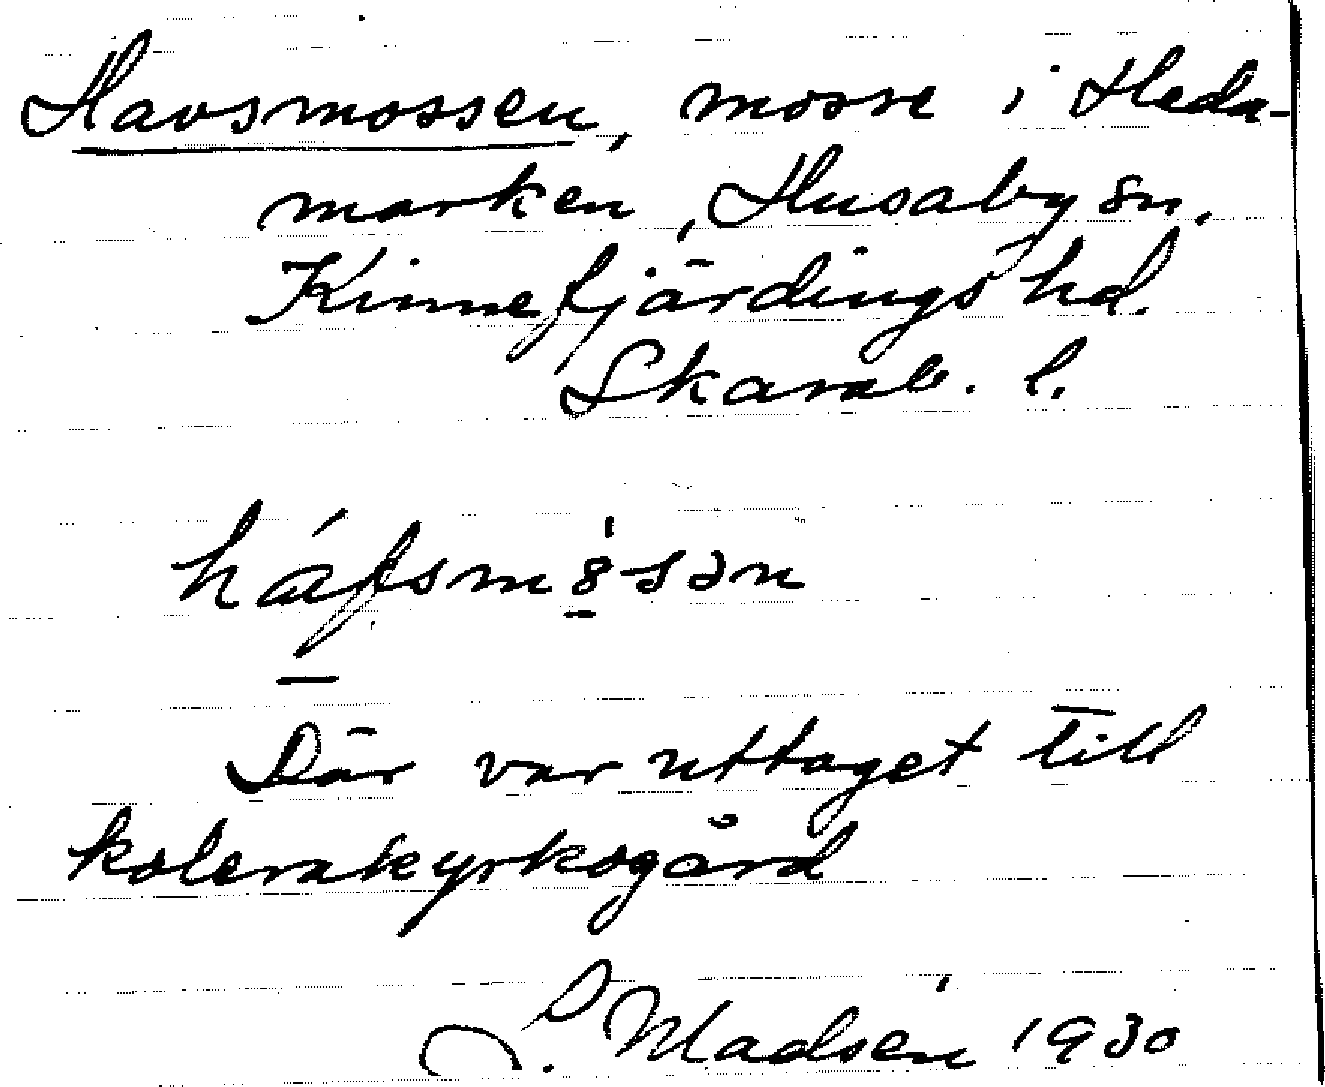 Havsmossen, mosse i Heda-
marken, Husaby sn,
Kinnefjärdings hd.
Skarab. l.
háfsm8̀sən
Där var uttaget till
kolerakyrkogård
S. Madsén 1930